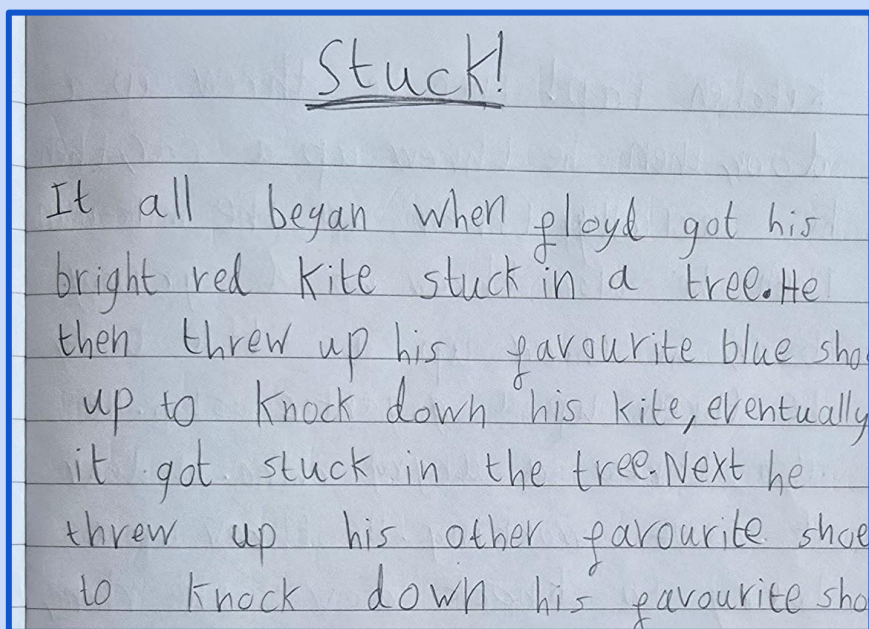 Stuck!
It all began when floyd got his
bright red kite stuck in a tree. He
then threw up his favourite blue sho
up to knock down his kite, eventually
it got stuck in the tree. Next he
threw up his other favourite shoe
to knock down his favourite sho